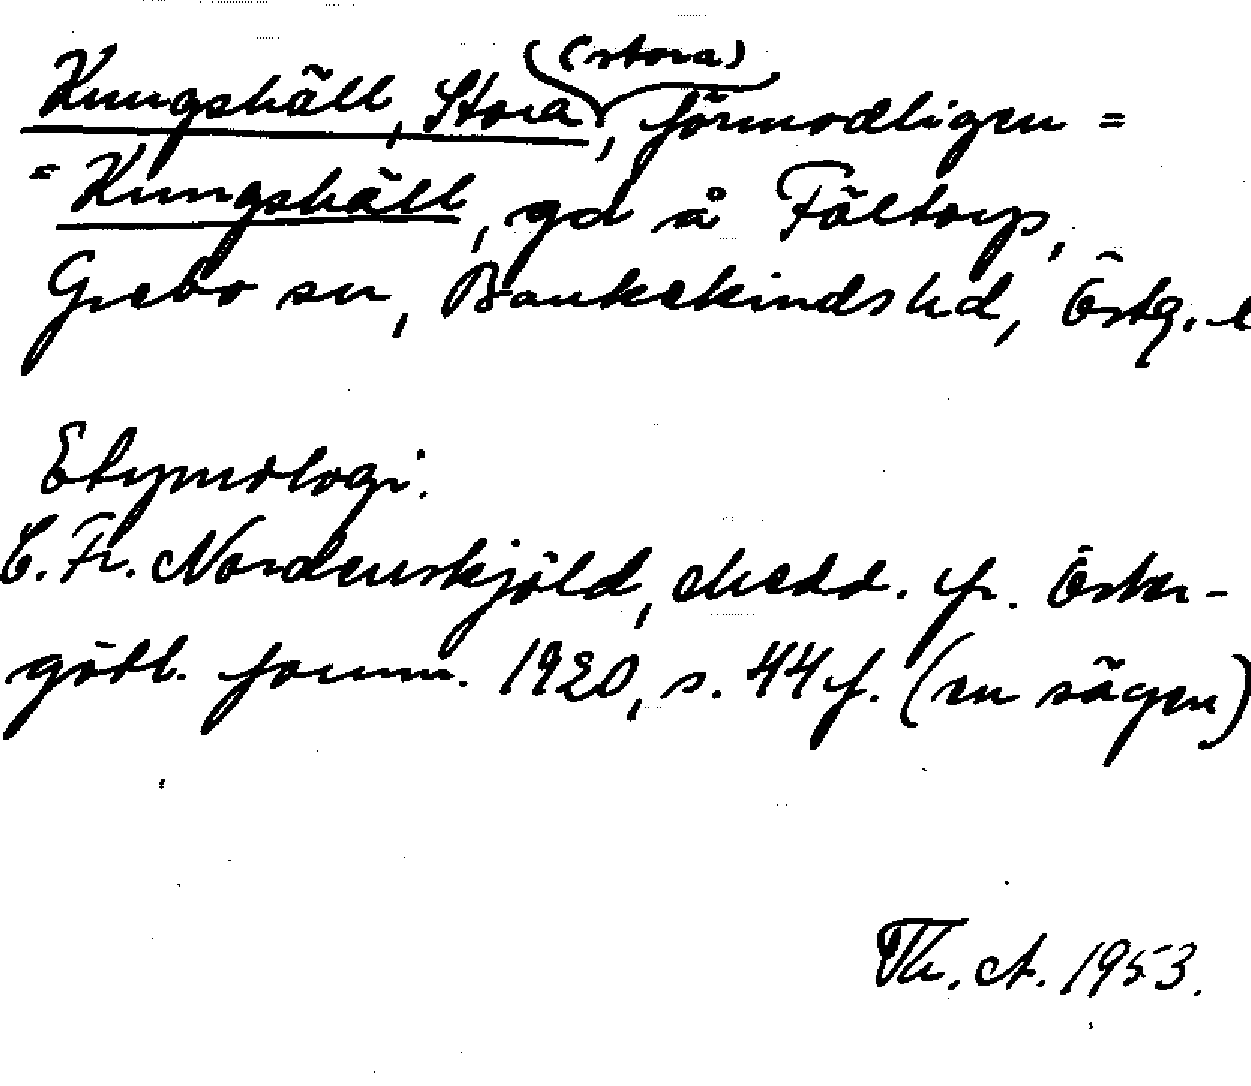 (stora)
Kungshäll, Stora, förmodligen =
= Kungshäll, gd å Fältorp,
Grebo sn, Bankekinds hd, Östg. l
Etymologi:
C. Fr. Nordenskjöld, Medd. fr. Öster-
götl. fornm. 1920, s. 44 f. (en sägen)
Th. A. 1953.